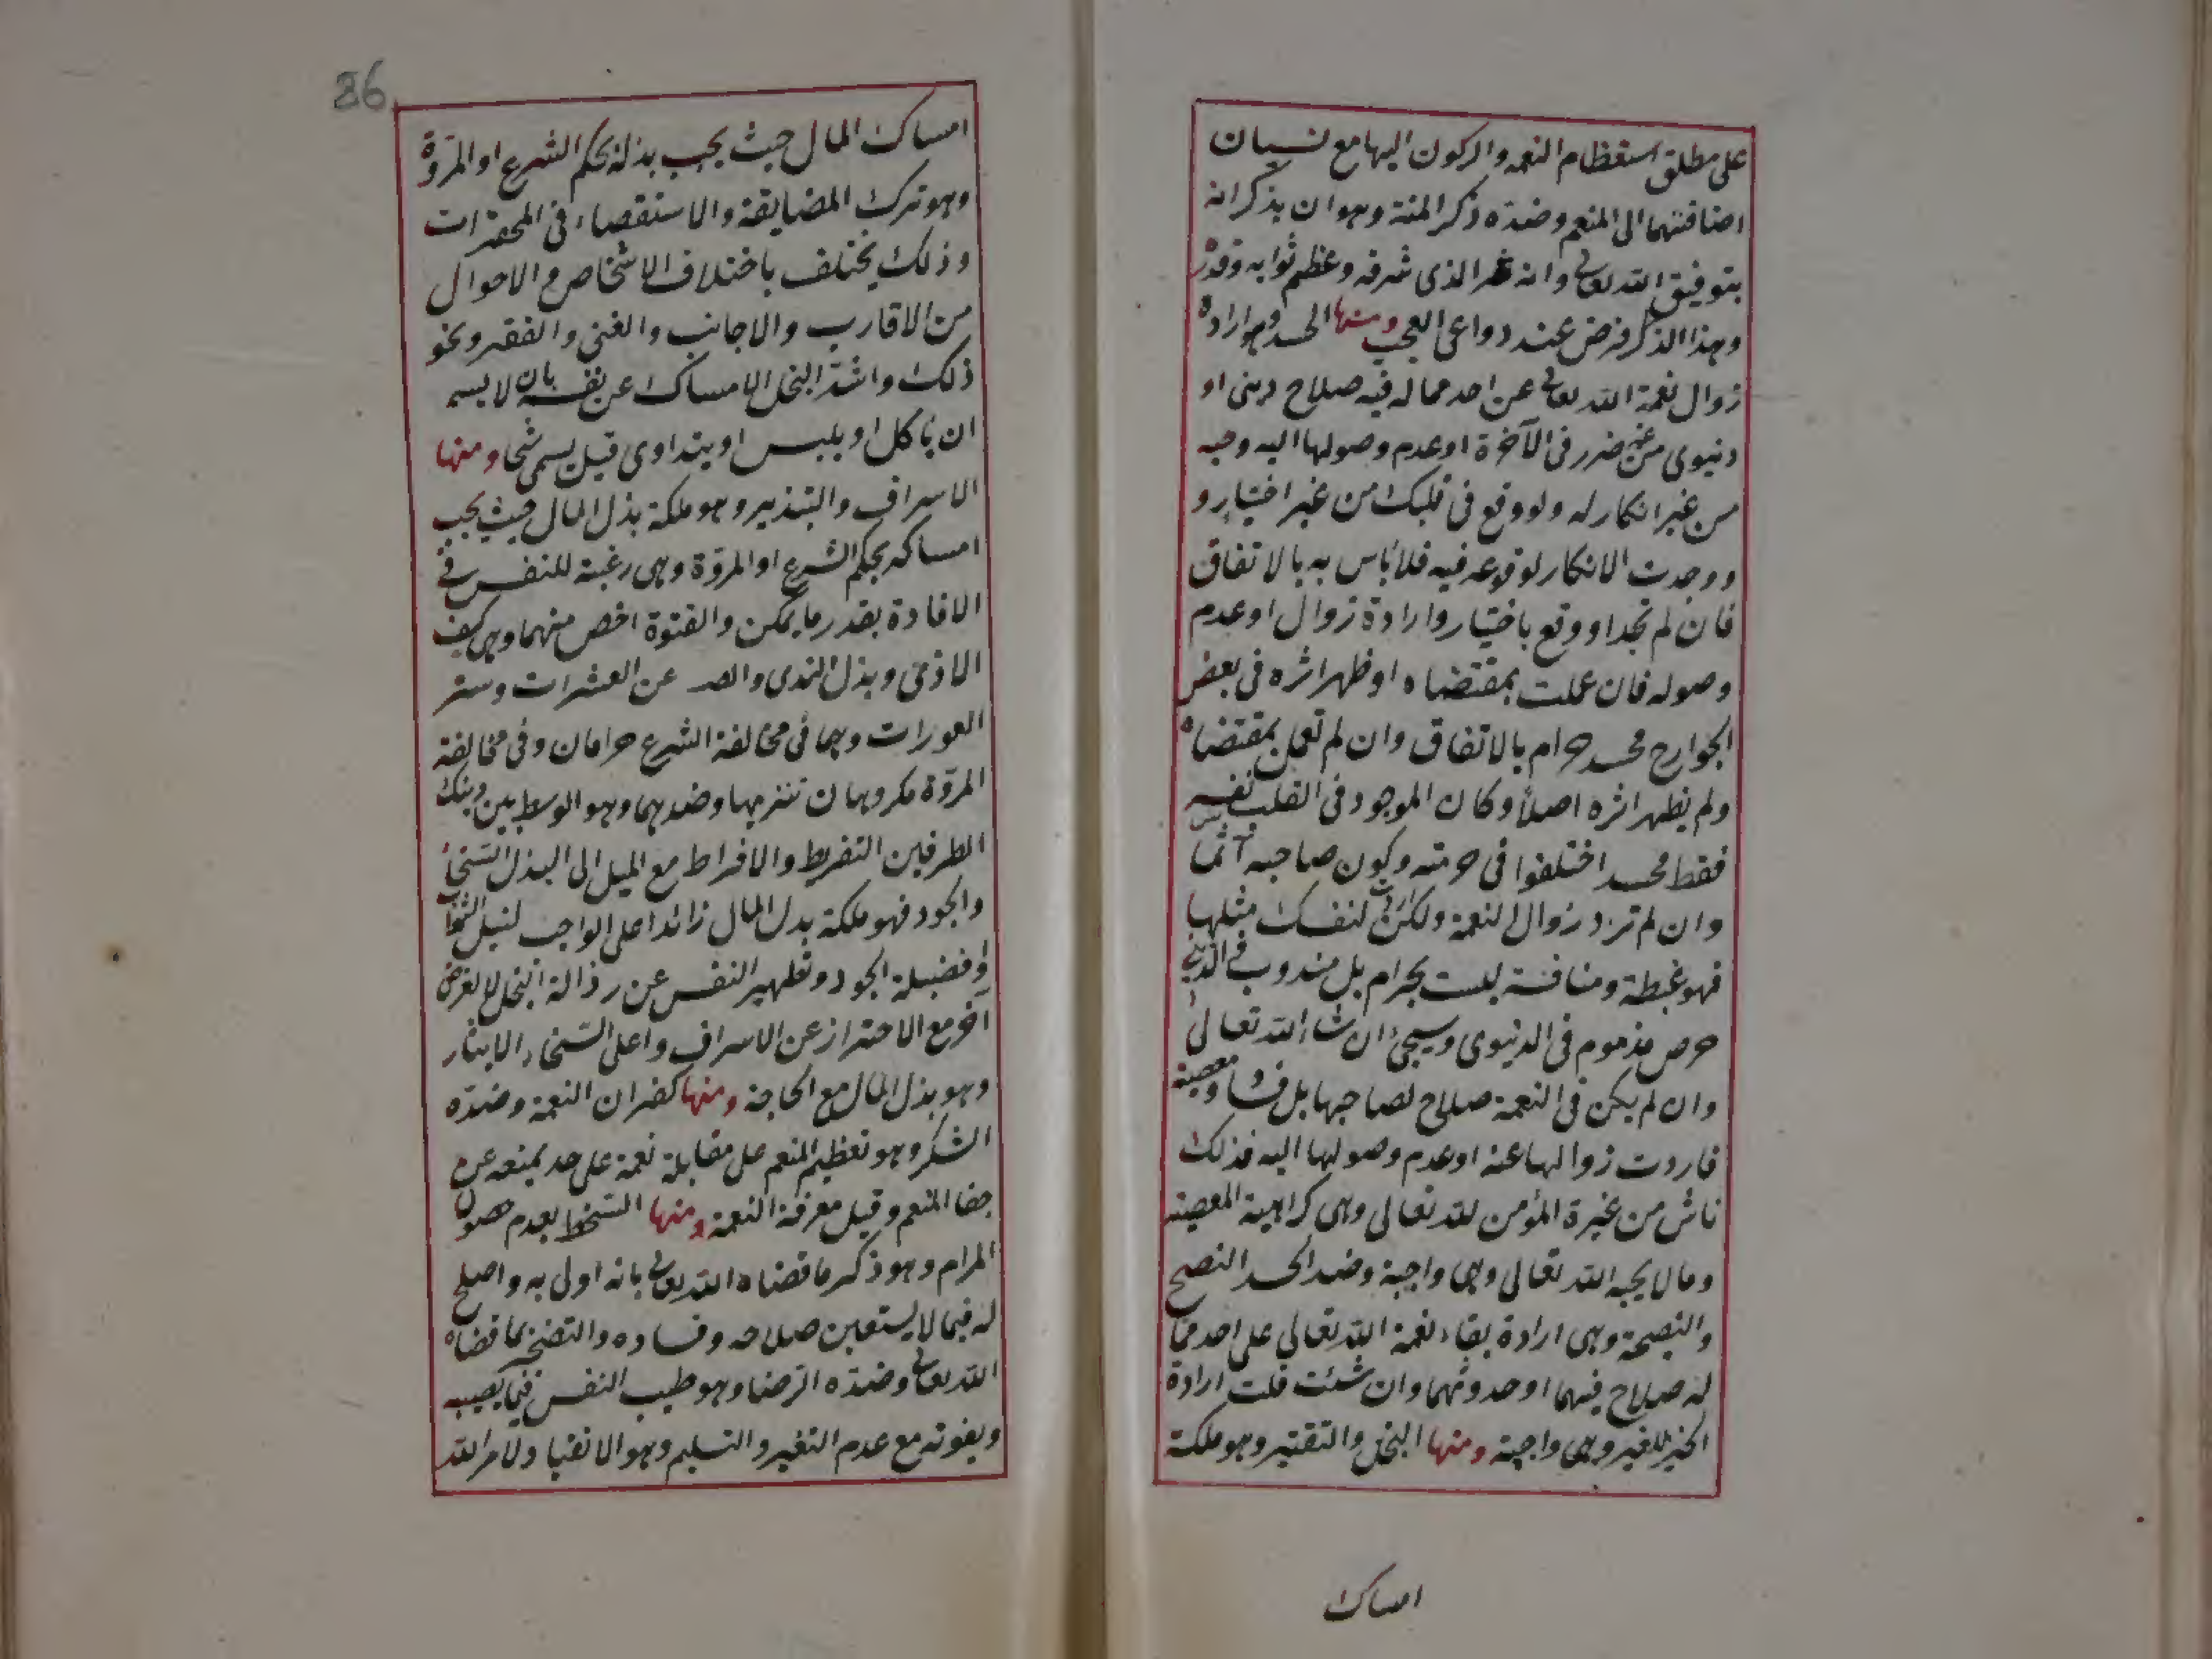 على مطلق استعظام النعمة والركون اليها مع نسيان
اضافتها الى المنعم وضده ذكر المنة وهو ان يذكر انه
بتوفيق الله تعالى وانه الذى شرفه وعظم ثوابه وقدره
وهذا الذكر فرض عند دواعى العجب ومنها الحسد وهو ارادة
زوال نعمة الله تعالى عن احد مما له فيه صلاح دينى او
دنيوى من غير ضرر فى الآخرة او عدم وصولها اليه وحبه
من غير انكار له ولو وقع فى قلبك من غير اختيار و
ووجدت الانكار لوقوعه فيه فلا بأس به بالاتفاق
فان لم تجد او وقع باختيار وارادة زوال او عدم
وصوله فان عملت بمقتضاه او ظهر اثره فى بعض
الجوارح فحسد حرام بالاتفاق وان لم تعمل بمقتضاه
ولم يظهر اثره اصلا وكان الموجود فى القلب نفسه
فقط فحسد اختلفوا فى حرمته وكون صاحبه آثما
وان لم ترد زوال النعمة ولكن لنفسك مثلها
فهو غبطة ومنافسة ليست بحرام بل مندوب فى الدينى
حرص مذموم فى الدنيوى وسيجئ ان شاء الله تعالى
وان لم يكن فى النعمة صلاح لصاحبها بل فساد ومعصية
فاردت زوالها عنه او عدم وصولها اليه فذلك
ناش من غيرة المؤمن لله تعالى وهى كراهية المعصية
وما لا يحبه الله تعالى وهى واجبة وضد الحسد النصح
والنصيحة وهى ارادة بقاء نعمة الله تعالى على احد مما
له صلاح فيهما او حدوثهما وان شئت قلت ارادة
الخير للغير وهى واجبة ومنها البخل والتقتير وهو ملكة
امساك
86
امساك المال حيث يجب بذله بحكم الشرع او المروّة
وهو ترك المضايقة والاستقصاء فى المحقرات
وذلك يختلف باختلاف الاشخاص والاحوال
من الاقارب والاجانب والغنى والفقر ونحو
ذلك واشد البخل الامساك عن نفسه بان لا يسمح
ان يأكل او يلبس او يتداوى قيل يسمى شحا ومنها
الاسراف والتبذير وهو ملكة بذل المال حيث يجب
امساكه بحكم الشرع او المروّة وهى رغبة للنفس فى
الافادة بقدر ما يمكن والفتوة اخص منهما وهى كف
الاذى وبذل الندى عن العثرات وستر
العورات وهما فى مخالفة الشرع حرامان وفى مخالفة
المروّة مكروهان تنزيها وضدهما وهو الوسط بين ذينك
الطرفين التفريط والافراط مع الميل الى البذل السخاء
والجود فهو ملكة بذل المال زائدا على الواجب لنيل الثواب
وفضيلة الجود وتطهير النفس عن رذالة البخل لا لغرض
آخر مع الاحتراز عن الاسراف واعلى السخاء الايثار
وهو بذل المال مع الحاجة ومنها كفران النعمة وضده
الشكر وهو تعظيم المنعم على مقابلة نعمة على حد يمنعه عن
جفا المنعم وقيل معرفة النعمة ومنها السخط بعدم حصول
المرام وهو ذكر ما قضاه الله تعالى بانه اولى به واصلح
له فيما لا يستيقن صلاحه وفساده والتضجر بما قضاه
الله تعالى وضده الرضا وهو طيب النفس فيما يصيبه
ويفوته مع عدم التغير والتسليم وهو الانقياد لامر الله